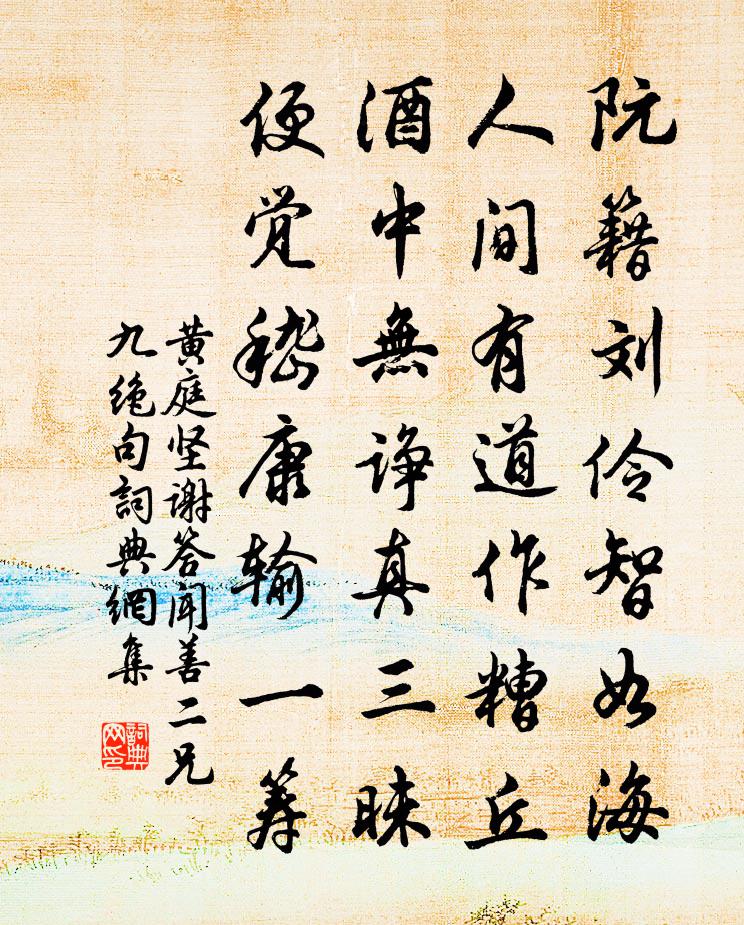 阮籍刘伶智如海
人间有道作糟丘
酒中無诤真三昧
便觉嵇康输一筹
黄庭坚谢答闻善二兄
九绝句詞典網集
詞典
网印